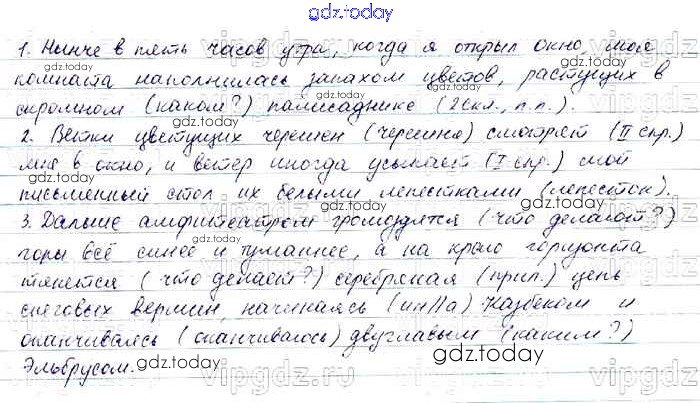 gdz.today
1. Нынче в пять часов утра, когда я открыл окно, моя
комната наполнилась запахом цветов, растущих в
скромном (каком?) палисаднике (2скл., п.п.).
2. Ветки цветущих черешен (черешня) смотрят (II спр.)
мне в окно, и ветер иногда усыпает (I спр.) мой
письменный стол их белыми лепестками (лепесток).
3. Дальше амфитеатром громоздятся (что делают?)
горы всё синее и туманнее, а на краю горизонта
тянется (что делает?) серебряная (прил.) цепь
снеговых вершин, начинаясь (ин//а) Казбеком и
оканчиваясь (оканчиваюсь) двуглавым (каким?)
Эльбрусом.
gdz.today
vipgdz.ru